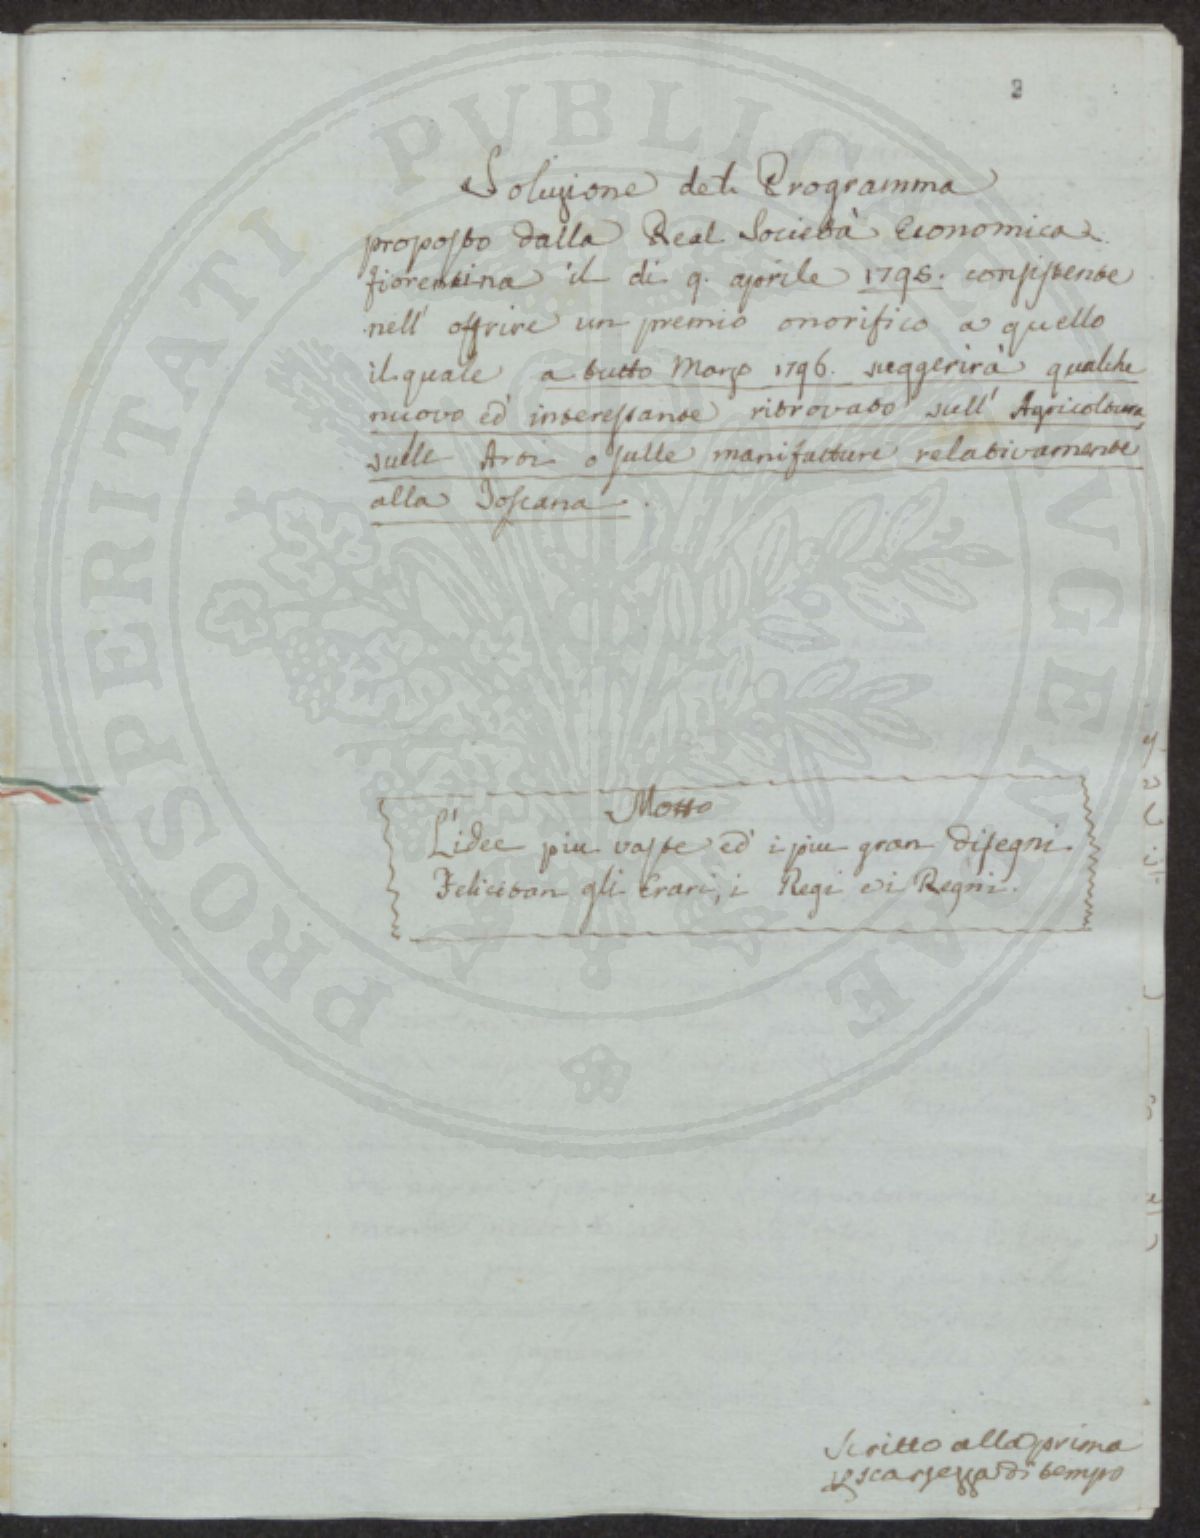 2
Soluzione del Programma
proposto dalla Real Società Economica
fiorentina il dì 9. aprile 1795. consistente
nell' offrire un premio onorifico a quello
il quale a tutto Marzo 1796. suggerirà qualche
nuovo ed interessante ritrovato sull' Agricoltura,
sulle Arti o sulle manifatture relativamente
alla Toscana.
Motto
L'idee piu vaste ed i piu gran disegni
Felicitan gli Erari, i Regi e i Regni.
Scritto alla prima
per scarsezza di tempo
PROSPERITATI PUBLICAE AUGENDAE